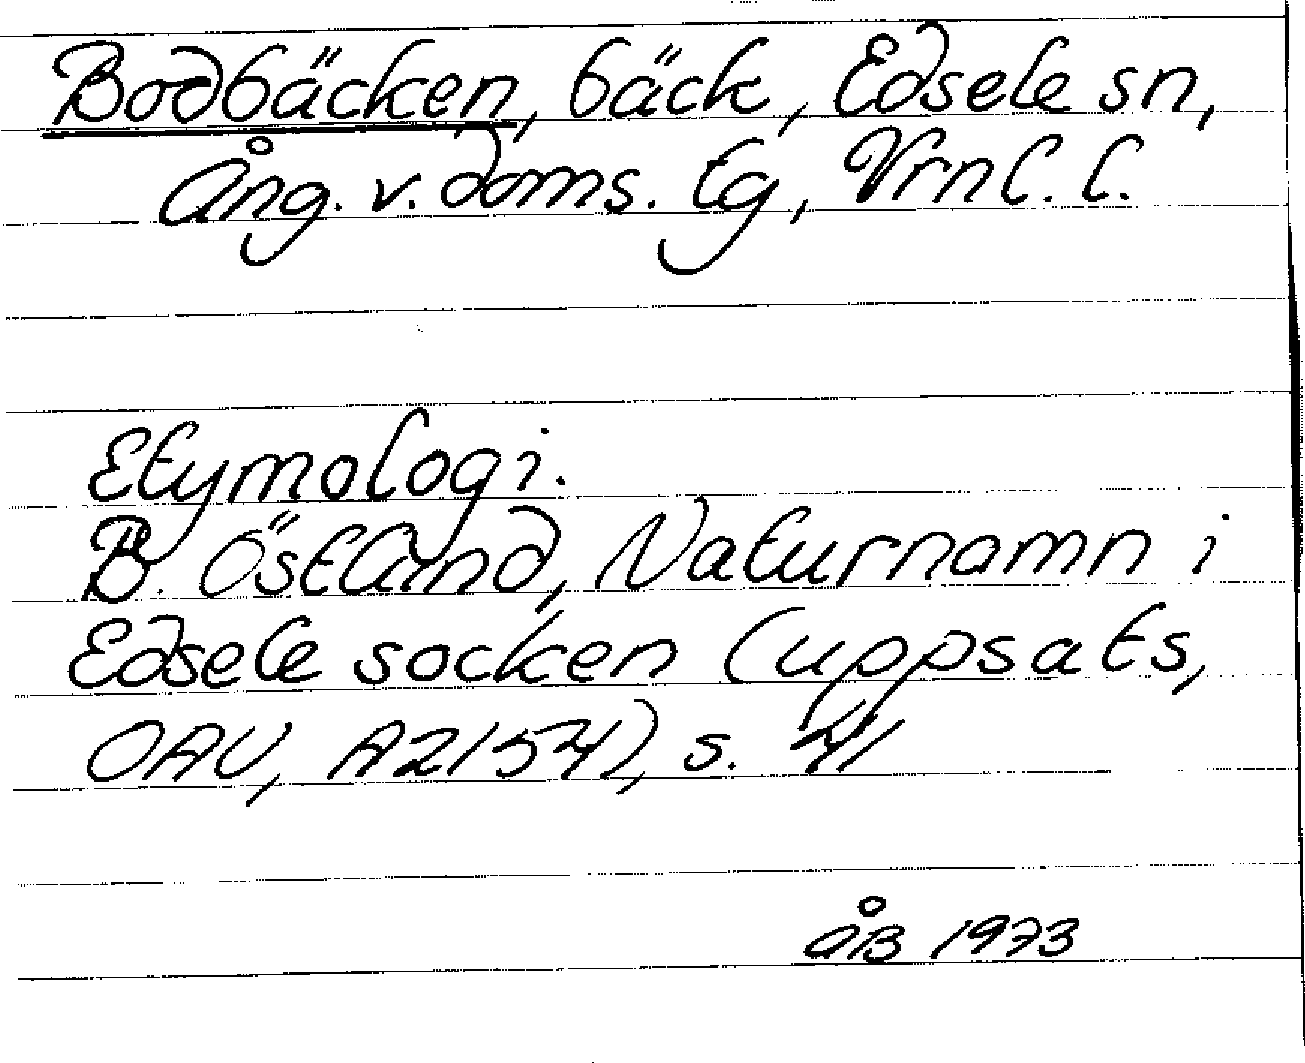 Bodbäcken, bäck, Edsele sn,
Ång. v. doms. tg, Vrnl. l.
Etymologi.
B. Östlund, Naturnamn i
Edsele socken (uppsats,
OAU, A2154), s. 41
ÅB 1973